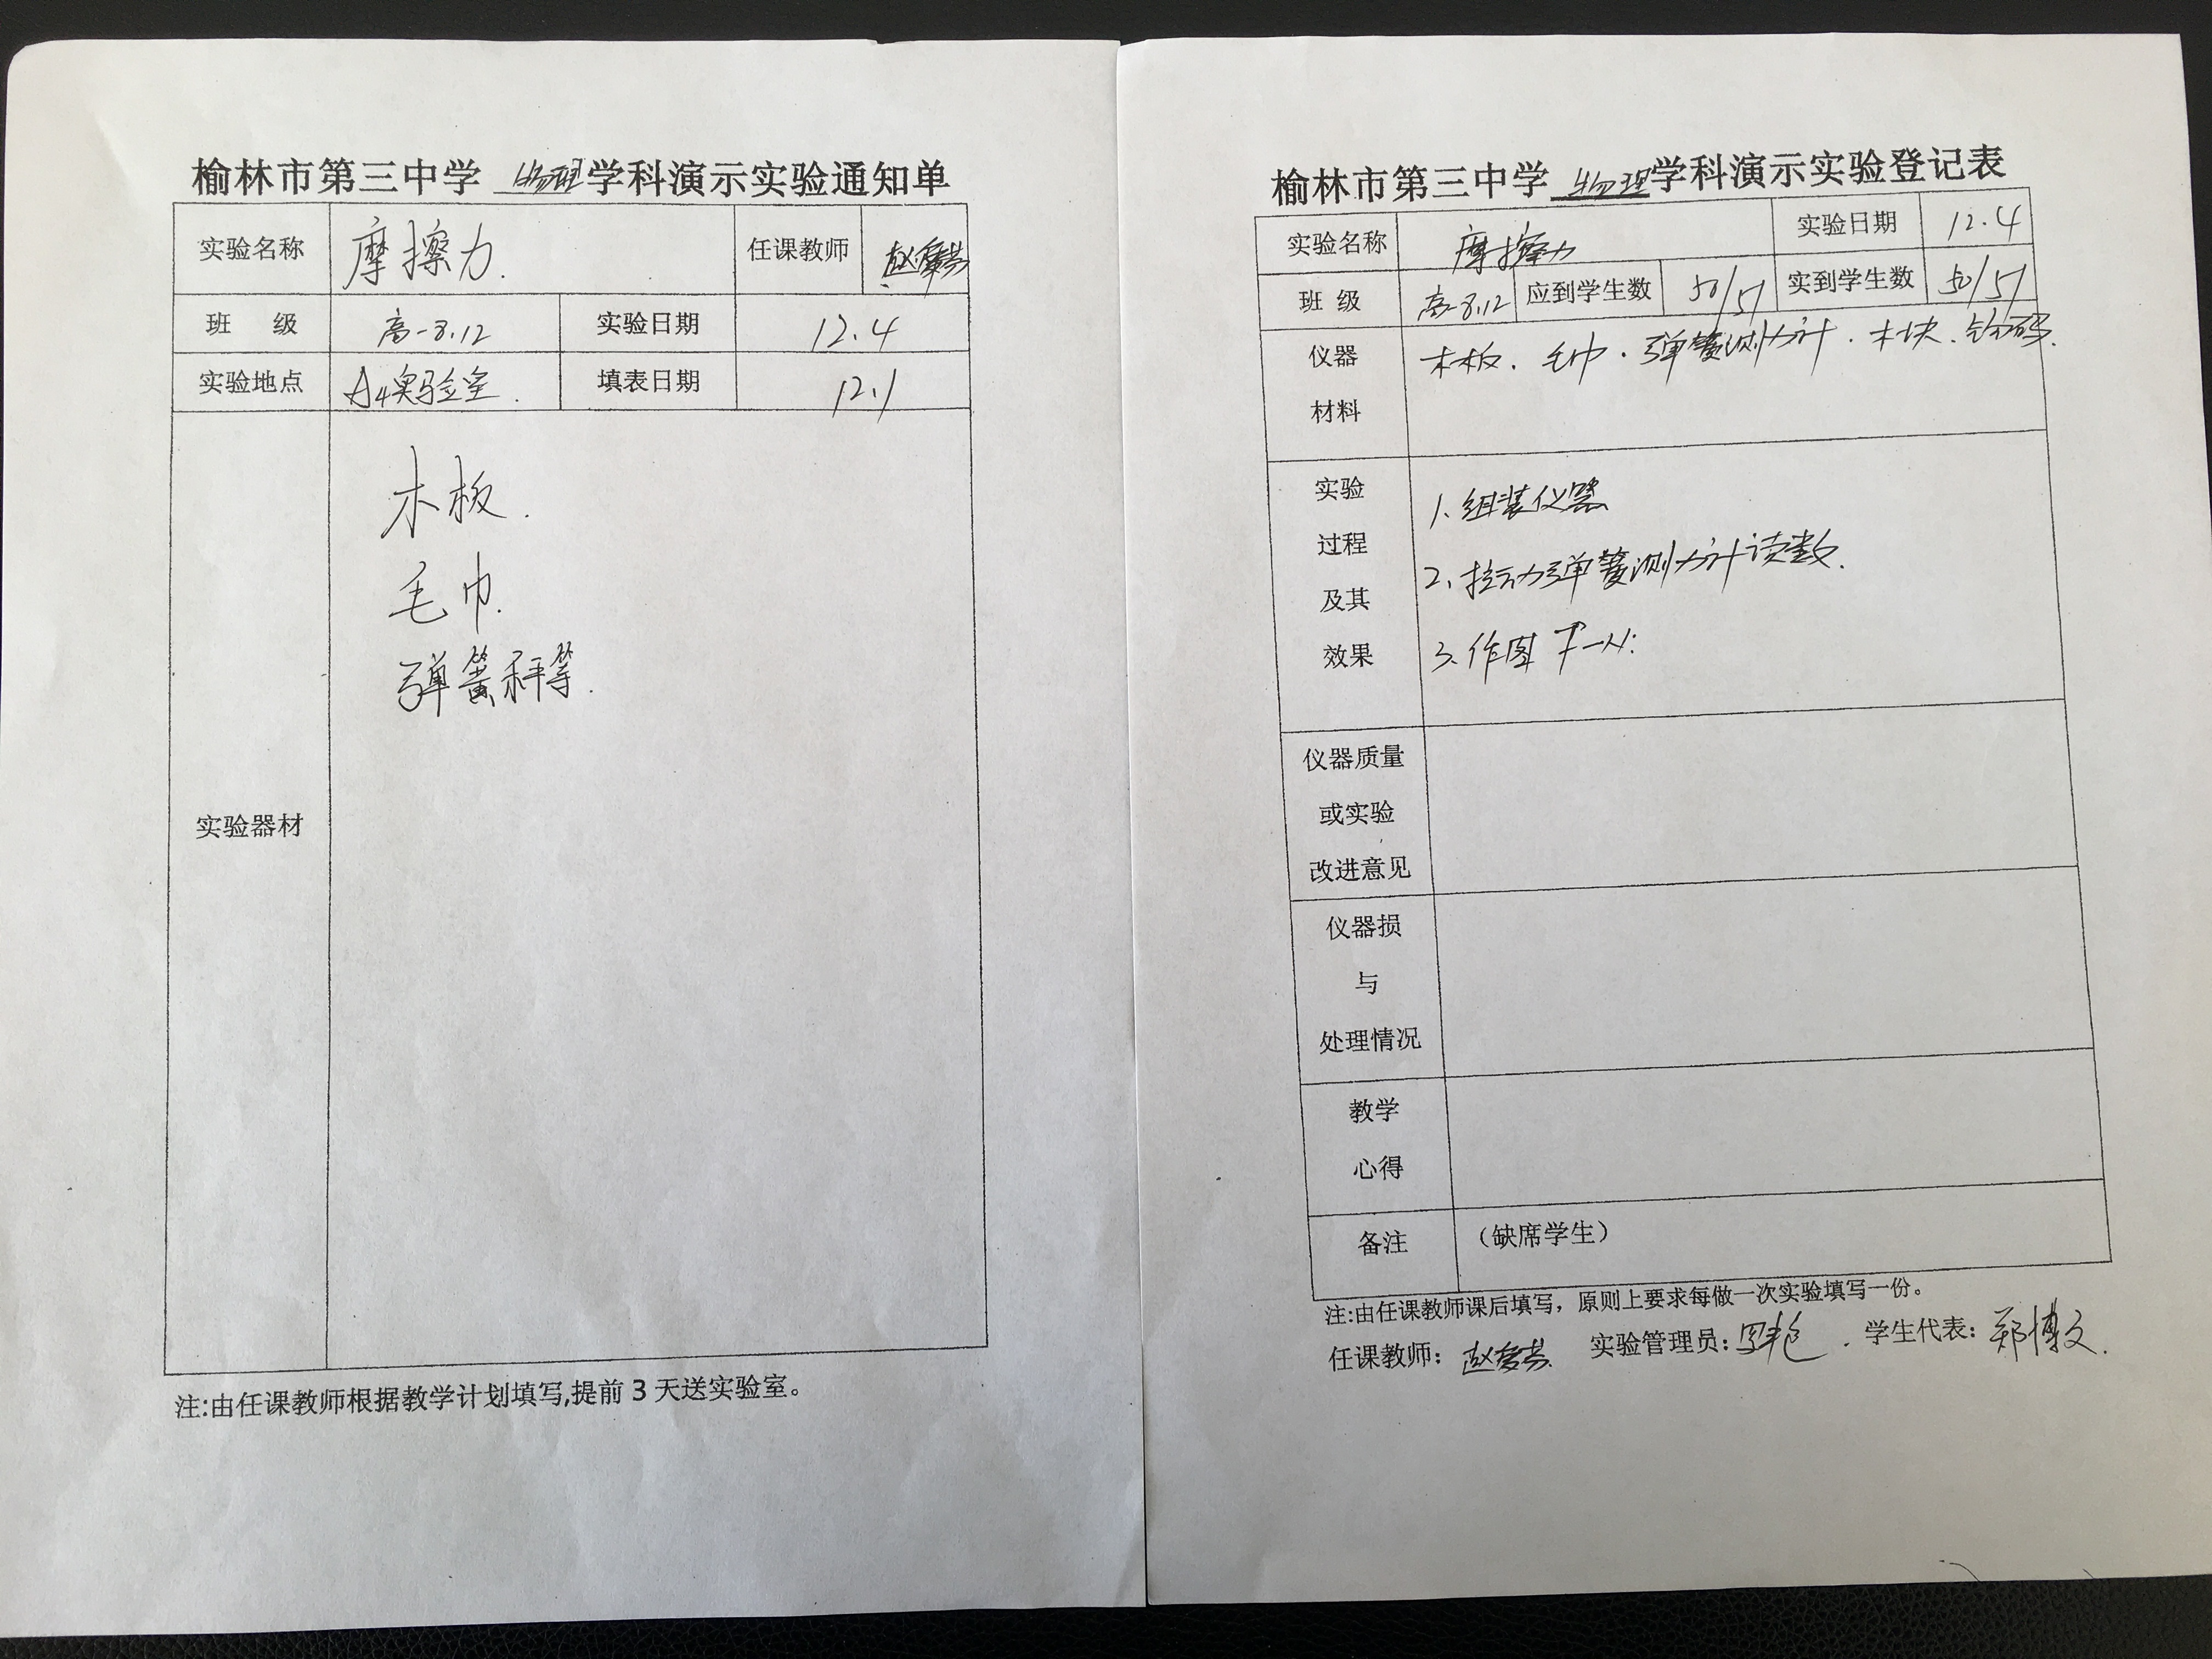 榆林市第三中学 物理学科演示实验通知单
实验名称 摩擦力. 任课教师
班 级 高一8.12 实验日期 12.4
实验地点 A4实验室. 填表日期 12.1
实验器材
木板.
毛巾.
弹簧秤等.
注:由任课教师根据教学计划填写,提前3天送实验室。
榆林市第三中学 物理学科演示实验登记表
实验名称 摩擦力 实验日期 12.4
班 级 高一8.12 应到学生数 50/51 实到学生数 50/51
仪器
材料
木板. 毛巾. 弹簧测力计. 木块. 钩码.
实验
过程
及其
效果
1、组装仪器
2、拉动弹簧测力计读数.
3、作图 F—N:
仪器质量
或实验
改进意见
仪器损
与
处理情况
教学
心得
备注 （缺席学生）
注:由任课教师课后填写，原则上要求每做一次实验填写一份。
任课教师: 实验管理员: 学生代表: 郑博文.